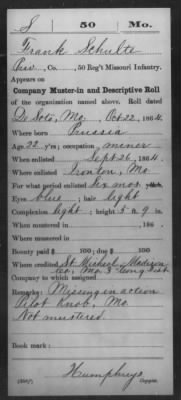 S 50 Mo.
Frank Schultz
Priv, Co. , 50 Reg't Missouri Infantry.
Appears on
Company Muster-in and Descriptive Roll
of the organization named above. Roll dated
De Soto, Mo. Oct 22, 1864.
Where born Prussia
Age 22 y'rs; occupation miner
When enlisted Sept 26, 1864.
Where enlisted Ironton, Mo.
For what period enlisted Six mos. years.
Eyes blue ; hair light
Complexion light ; height 5 ft. 9 in.
When mustered in , 186 .
Where mustered in
Bounty paid $ 100; due $ 100
Where credited St. Michael, Madison
Co., Mo. 3" Cong. Dist.
Company to which assigned
Remarks: Missing in action
Pilot Knob, Mo.
Not mustered.
Book mark:
Humphreys
Copyist.